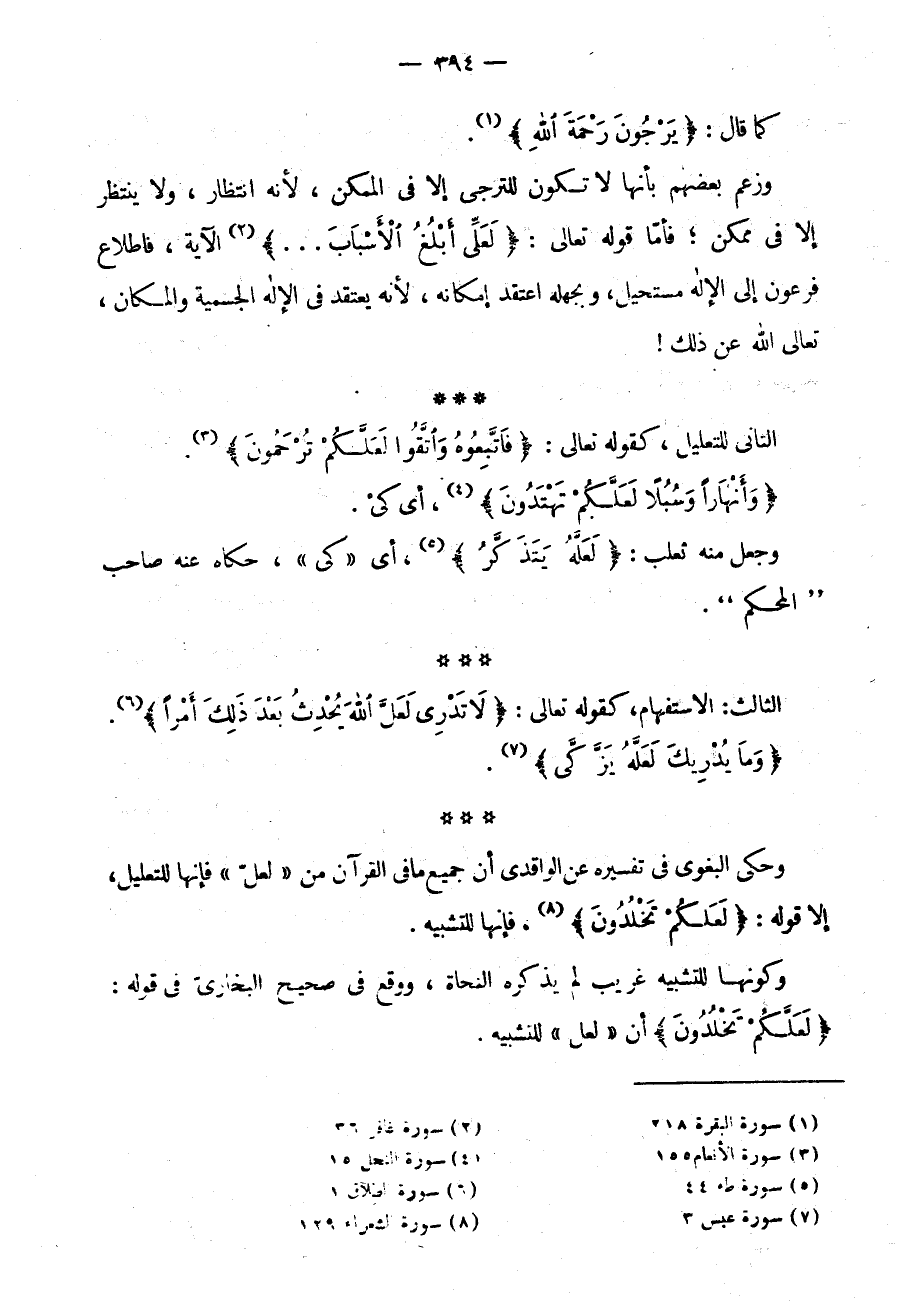 — ٣٩٤ —
كما قال : ﴿ يَرْجُونَ رَحْمَةَ ٱللهِ ﴾ (١) .
وزعم بعضهم بأنها لا تكون للترجى إلا فى الممكن ، لأنه انتظار ، ولا ينتظر
إلا فى ممكن ؛ فأمّا قوله تعالى : ﴿ لَعَلِّى أَبْلُغُ ٱلْأَسْبَابَ . . . ﴾ (٢) الآية ، فاطلاع
فرعون إلى الإلٰه مستحيل، وبجهله اعتقد إمكانه ، لأنه يعتقد فى الإلٰه الجسمية والمكان ،
تعالى الله عن ذلك !
* * *
الثانى للتعليل ، كقوله تعالى : ﴿ فَاتَّبِعُوهُ وَٱتَّقُوا لَعَلَّكُمْ تُرْحَمُونَ ﴾ (٣) .
﴿ وَأَنْهَاراً وَسُبُلًا لَعَلَّكُمْ تَهْتَدُونَ ﴾ (٤) ، أى كىْ .
وجعل منه ثعلب : ﴿ لَعَلَّهُ يَتَذَكَّرُ ﴾ (٥) ، أى « كى » ، حكاه عنه صاحب
” المحكم “ .
* * *
الثالث: الاستفهام، كقوله تعالى : ﴿ لَا تَدْرِى لَعَلَّ ٱللهَ يُحْدِثُ بَعْدَ ذَلِكَ أَمْراً ﴾ (٦) .
﴿ وَمَا يُدْرِيكَ لَعَلَّهُ يَزَّكَّى ﴾ (٧) .
* * *
وحكى البغوى فى تفسيره عن الواقدى أن جميع مافى القرآن من « لعلّ » فإنها للتعليل،
إلا قوله : ﴿ لَعَلَكُمْ تَخْلُدُونَ ﴾ (٨) . فإنها للتشبيه .
وكونها للتشبيه غريب لم يذكره النحاة ، ووقع فى صحيح البخارىّ فى قوله :
﴿ لَعَلَّكُمْ تَخْلُدُونَ ﴾ أن « لعل » للتشبيه .
(١) سورة البقرة ٢١٨ (٢) سورة غافر ٣٦
(٣) سورة الأنعام ١٥٥ (٤) سورة النحل ١٥
(٥) سورة طه ٤٤ (٦) سورة الطلاق ١
(٧) سورة عبس ٣ (٨) سورة الشعراء ١٢٩